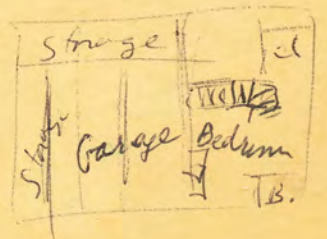 Storage
cl
Storage
Garage
Bedroom
B.